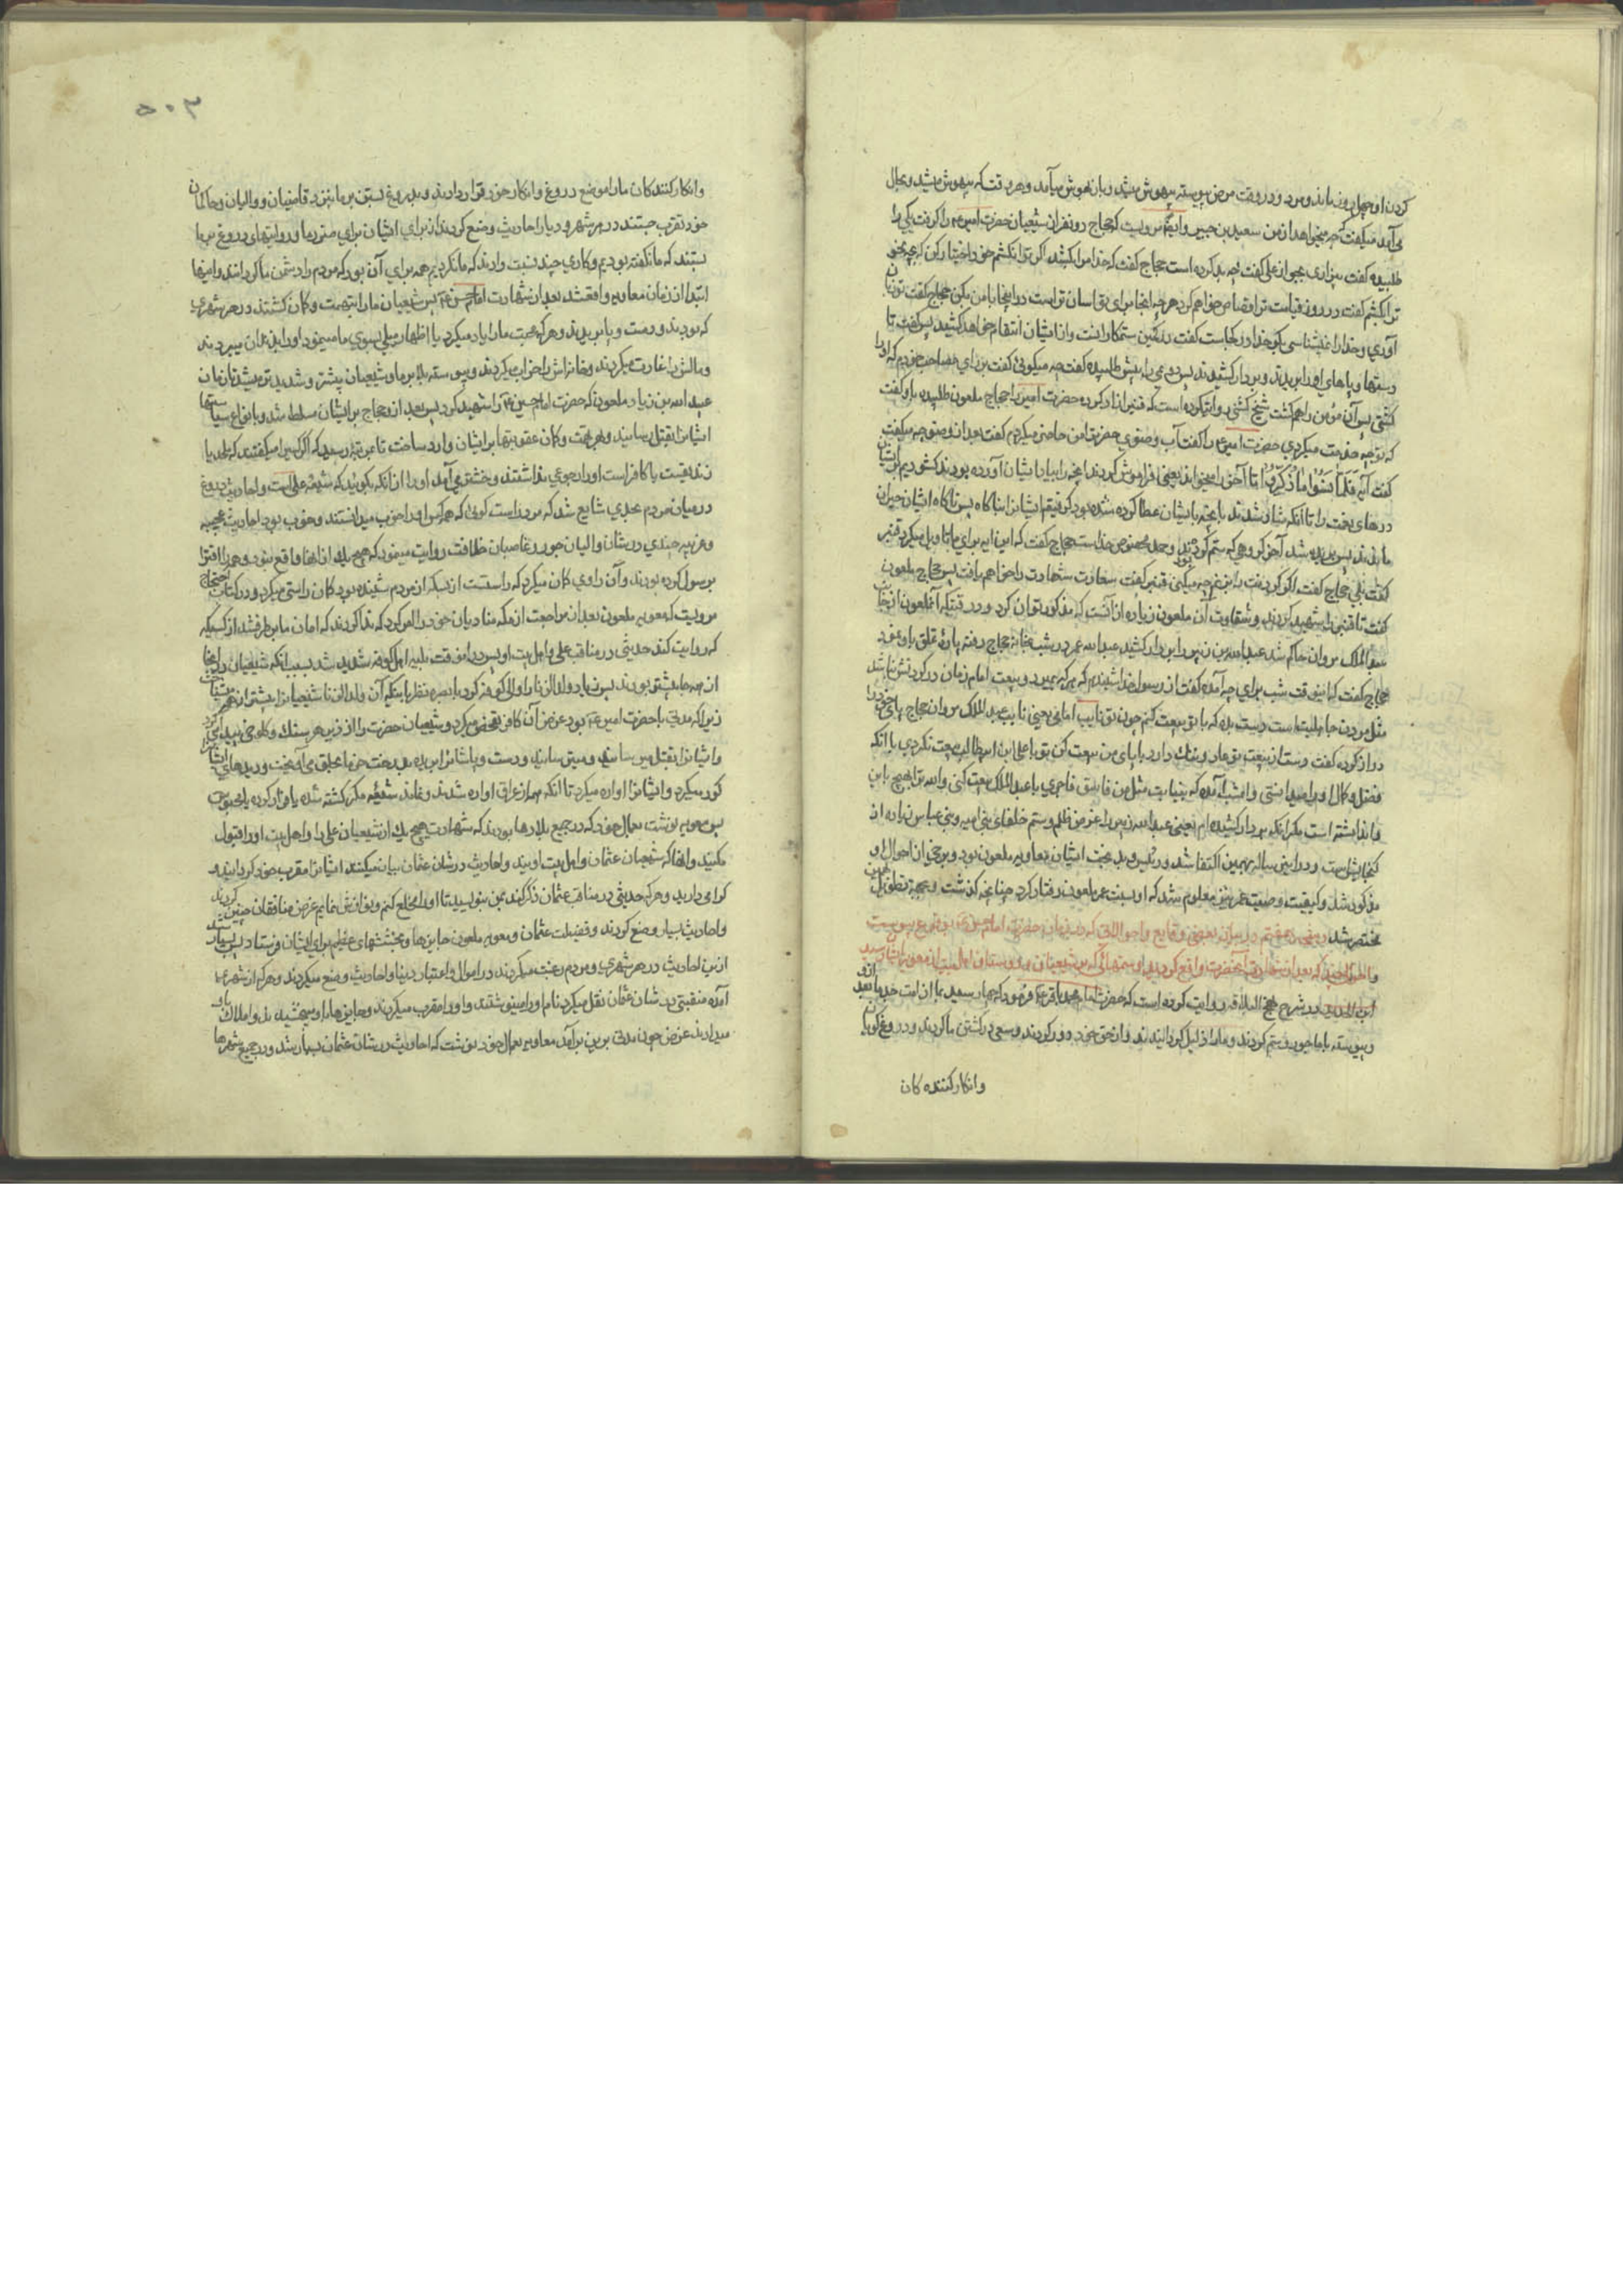 کردن او چهل روز نماند و مرد و در وقت مرض پیوسته بیهوش میشد و بازبهوش میآمد و هر وقت که بیهوش میشد و بحال
می‌آمد میگفت که چه میخواهد از من سعید بن جبیر و ایضا مرویست که حجاج دو نفر از شیعیان حضرت امیر ع را گرفت یکی را
طلبیده گفت بیزاری بجوی از علی گفت چه بد کرده است حجاج گفت که خدا مرا بکشد اکر ترا نکشم خود اختیار کن که بچه نحو
ترا بکشم گفت در روز قیامت ترا قصاص خواهم کرد هرچه اینجا برای تو آسان تر است در اینجا با من بکن حجاج گفت تو زبان
آوری و خدا را نمیشناسی بگو خدا در کجاست گفت در کمین ستمکارانست و از ایشان انتقام خواهد کشید پس گفت تا
دستها و پاهای او را بریدند و بر دار کشیدند پس دومی را پیش طلبیده گفت چه میگوئی گفت بر رای مصاحب خودم که او را
کشتی پس آن مؤمن را هم کشت شیخ کشی روایت کرده است که قنبر ازاد کرده حضرت امیر را حجاج ملعون طلبیده باو گفت
که تو چه خدمت میکردی حضرت امیر ع را گفت آب وضوی حضرت را من حاضر میکردم گفت بعد از وضو چه میگفت
گفت آیه فَلَمَّا نَسُوا مَا ذُكِّرُوا تا آخر را میخواند یعنی فراموش کردند آنچه را بیاد ایشان آورده بودند کشودیم بر ایشان
درهای نعمت را تا آنکه شاد شدند بآنچه بایشان عطا کرده شده بود گرفتیم ایشان را بناگاه پس ناگاه ایشان حیران
ماندند پس بریده شد آخر گروهی که ستم کردند و حمد مخصوص خداست حجاج گفت که این ایه برای ما تاویل میکرد قنبر
گفت بلی حجاج گفت اکر گردنت را بزنم چه میکنی قنبر گفت سعادت شهادت را خواهم یافت پس حجاج ملعون
گفت تا قنبر را شهید کردند و شقاوت آن ملعون زیاده از آنست که مذکور توان کرد و در وقتیکه آنملعون از جانب
عبدالملک مروان حاکم شد عبدالله بن زبیر را بر دار کشید عبدالله عمر در شب بخانه حجاج رفته پاره تملق باو نمود
حجاج گفت که اینوقت شب برای چه آمده گفت از رسول خدا شنیدم که هر که بمیرد و بیعت امام زمان در گردنش نباشد
مثل مردن جاهلیتست دست بده که با تو بیعت کنم چون تو نایب امامی یعنی نایب عبدالملک مروان حجاج پای خود را
دراز کرده گفت دستان بیعت تو عار و ننک دارد با پای من بیعت کن تو با علی ابن ابیطالب بیعت نکردی با آنکه
فضل و کمال او را میدانستی و امشب آمده که بنیابت مثل من فاسق فاجری با عبدالملک بیعت کنی والله ترا هیچ باین
وا نداشته است مگر آنکه بر دار کشیده ام یعنی عبدالله زبیر را غرض ظلم و ستم خلفای بنی امیه و بنی عباس زیاده از
گنجایش است و در این رساله بهمین اکتفا شد و رئیس و بد بخت ایشان معاویه ملعون بود و برخی از احوال او
مذکور شد و کیفیت وصیت عمر نیز معلوم شد که او بسنت عمر ملعون رفتار کرد چنانچه گذشت و بجهة تطویل همین
مختصر شد
ابن ابی الحدید در شرح نهج البلاغه روایت کرده است که حضرت امام محمد باقر ع فرمود که چها رسید بما از امت جد ما بعد از او
و پیوسته با ما جور و ستم کردند و ما را ذلیل گردانیدند و از حق خود دور کردند و سعی در کشتن ما کردند و دروغ گویان
وانکار کننده کان
۵۰۳
وانکار کنندکان ما را موضع دروغ و انکار خود قرار دادند و بدروغ بستن بر ما نزد قاضیان و والیان و حاکمان
خود تقرب جستند در هر شهر و دیار احادیث وضع کردند از برای ایشان برای ضرر ما و روایتهای دروغ بر ما
بستند که ما نگفته بودیم و کاری چند نسبت دادند که ما نکردیم همه برای آن بود که مردم را دشمن ما گردانند و اینها
ابتدا از زمان معاویه واقع شد بعد از شهادت امام حسن ع پس شیعیان ما را بتهمت و کمان کشتند در هر شهری
که بودند و دست و پا بریدند و هر که محبت ما را یاد میکرد یا اظهار میلی بسوی ما مینمود او را بزندان میبردند
و مالش را غارت میکردند و خانه‌اش را خراب میکردند و پیوسته بلا بر ما و شیعیان بیشتر و شدید تر میشد تا زمان
عبید الله بن زیاد ملعون که حضرت امام حسین ع را شهید کرد پس بعد از او حجاج بر ایشان مسلط شد و بانواع سیاستها
ایشان را بقتل رسانید و بهر تهمت و کمان عقوبتها بر ایشان وارد ساخت تا بمرتبه رسید که اکر کسی را میگفتند که ملحد یا
زندیقست یا کافر است او را رجوعی نداشتند و خوشتر می آمد او را از آنکه بگویند که شیعه علی است و احادیث دروغ
در میان مردم بحدی شایع شد که مرد راست کوئی که همه کس او را خوب میدانستند و خوب بود احادیث عجیبه
و غریبه چندی در شان والیان جور و غاصبان خلافت روایت مینمود که هیچ یک از انها واقع نبود و همه را افترا
بر رسول کرده بودند و آن راوی کمان میکرد که راستست از بسکه از مردم شنیده بود کمان راستی میکرد و در کتاب احتجاج
مرویست که معویه ملعون بعد از مراجعت از مکه منادیان خود را امر کرد که ندا کردند که امان ما بر طرف شد از کسیکه
که روایت کند حدیثی در مناقب علی و اهل بیت او پس در انوقت بلیه اهل کوفه شدید شد بسبب آنکه شیعیان در آنجا
از همه جا بیشتر بودند پس زیاد ولدالزنا را والی کوفه کرد با بصره نظر باینکه آن ولدالزنا شیعیان را بیشتر از همه میشناخت
زیرا که مدتی با حضرت امیر ع بود عوض آن کافر تفحص میکرد و شیعیان حضرت را از زیر هر سنک و کلوخی پیدا میکرد
و ایشان را بقتل میرسانید و میترسانید و دست و پا ایشان را بریده بدرخت خرما بحلق می آویخت و دیدهای ایشان را
کور میکرد و ایشان را آواره میکرد تا آنکه همه از عراق آواره شدند و نماند شیعه مگر کشته شده یا فرار کرده یا محبوس
پس معویه نوشت بعمال خود که در جمیع بلادها بودند که شهادت هیچ یک از شیعیان علی را و اهل بیت او را قبول
مکنید و انها که شیعیان عثمان و اهل بیت اویند و احادیث در شان عثمان بیان میکنند ایشان را مقرب خود گردانید و
گرامی دارید و هر که حدیثی در مناقب عثمان ذکر کند بمن بنویسید تا او را مخلع کنم و نوازش نمایم غرض منافقان چنین کردند
و احادیث بسیار وضع کردند و فضیلت عثمان و معویه ملعون جایزها و بخششهای عظیم برای ایشان فرستاد بسیار شد
از این احادیث در هر شهری و مردم رغبت میکردند در اموال و اعتبار دنیا و احادیث وضع میکردند و هر که از شهری
آمده منقبتی در شان عثمان نقل میکرد نام او را مینوشتند و او را مقرب میکردند و جایزها باو میبخشیدند و املاک باو
میدادند غرض چون مدتی بر این بر آمد معاویه بعمال خود نوشت که احادیث در شان عثمان بسیار شد و در جمیع شهرها